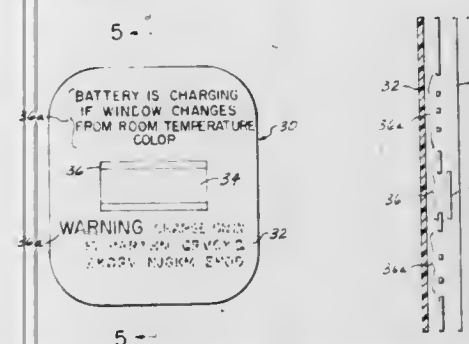 5
BATTERY IS CHARGING
IF WINDOW CHANGES
FROM ROOM TEMPERATURE
COLOR
36a
30
36
34
WARNING
36a
32
5
32
36a
36
36a